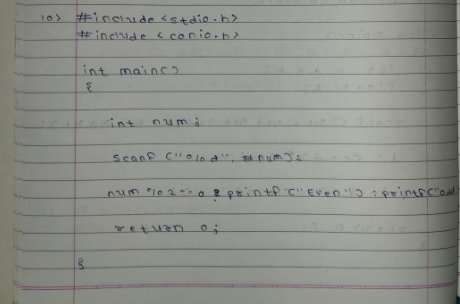 10> #include <stdio.h>
#include <conio.h>
int main()
{
int num;
scanf ("%d", &num);
num %2 == 0 ? printf ("Even") : printf("odd
return 0;
}